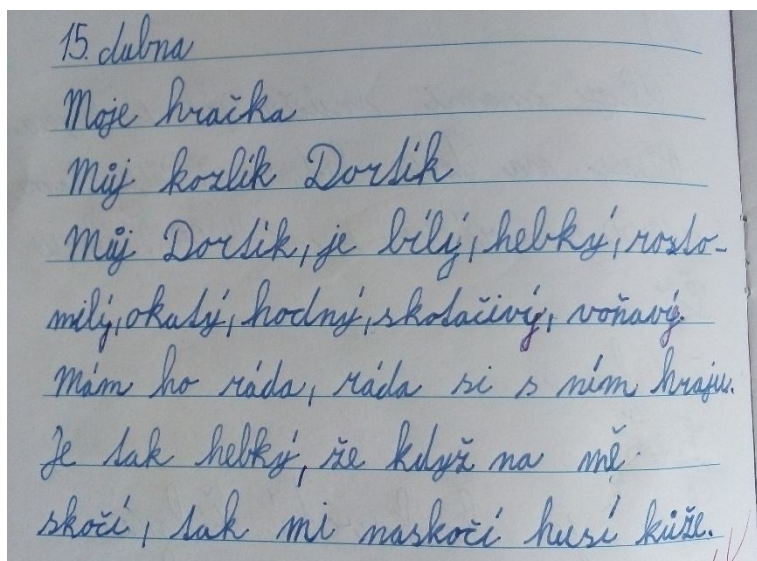 15. dubna
Moje hračka
Můj kozlík Dortík
Můj Dortík, je bílý, hebký, rozto-
milý, okatý, hodný, skotačivý, voňavý.
Mám ho ráda, ráda si s ním hraju.
Je tak hebký, že když na mě
skočí, tak mi naskočí husí kůže.